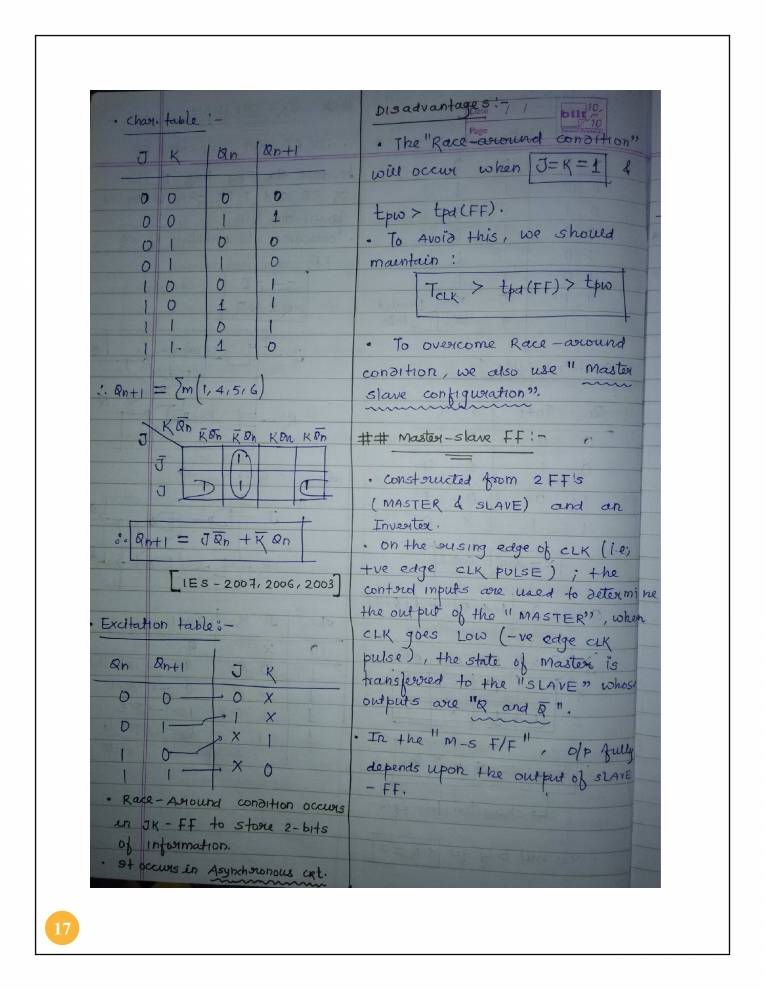 • Char. table :-
J K Qn Qn+1
0 0 0 0
0 0 1 1
0 1 0 0
0 1 1 0
1 0 0 1
1 0 1 1
1 1 0 1
1 1 1 0
∴ Qn+1 = Σm(1,4,5,6)
KQ̅n
J K̅Q̅n K̅Qn KQn KQ̅n
J̅ 1
J 1 1 1
∴ Qn+1 = JQ̅n + K̅Qn
[IES-2007, 2006, 2003]
• Excitation table:-
Qn Qn+1 J K
0 0 → 0 X
0 1 → 1 X
1 0 → X 1
1 1 → X 0
• Race-Around condition occurs
in JK-FF to store 2-bits
of information.
• It occurs in Asynchronous ckt.
Disadvantages:-
Date / /
Page
bilt
• The "Race-around condition"
will occur when J=K=1 &
tpw > tpd(FF).
• To Avoid this, we should
maentain :
TCLK > tpd(FF) > tpw
• To overcome Race-around
condition, we also use "Master
slave configuration".
## Master-slave FF:-
• constructed from 2 FF's
(MASTER & SLAVE) and an
Inverter.
• on the rising edge of CLK (i.e;
+ve edge CLK PULSE) ; the
control inputs are used to determine
the output of the "MASTER", when
CLK goes Low (-ve edge CLK
pulse), the state of Master is
transferred to the "SLAVE" whose
outputs are "Q and Q̅".
• In the "M-S F/F", O/P fully
depends upon the output of SLAVE
- FF.
17